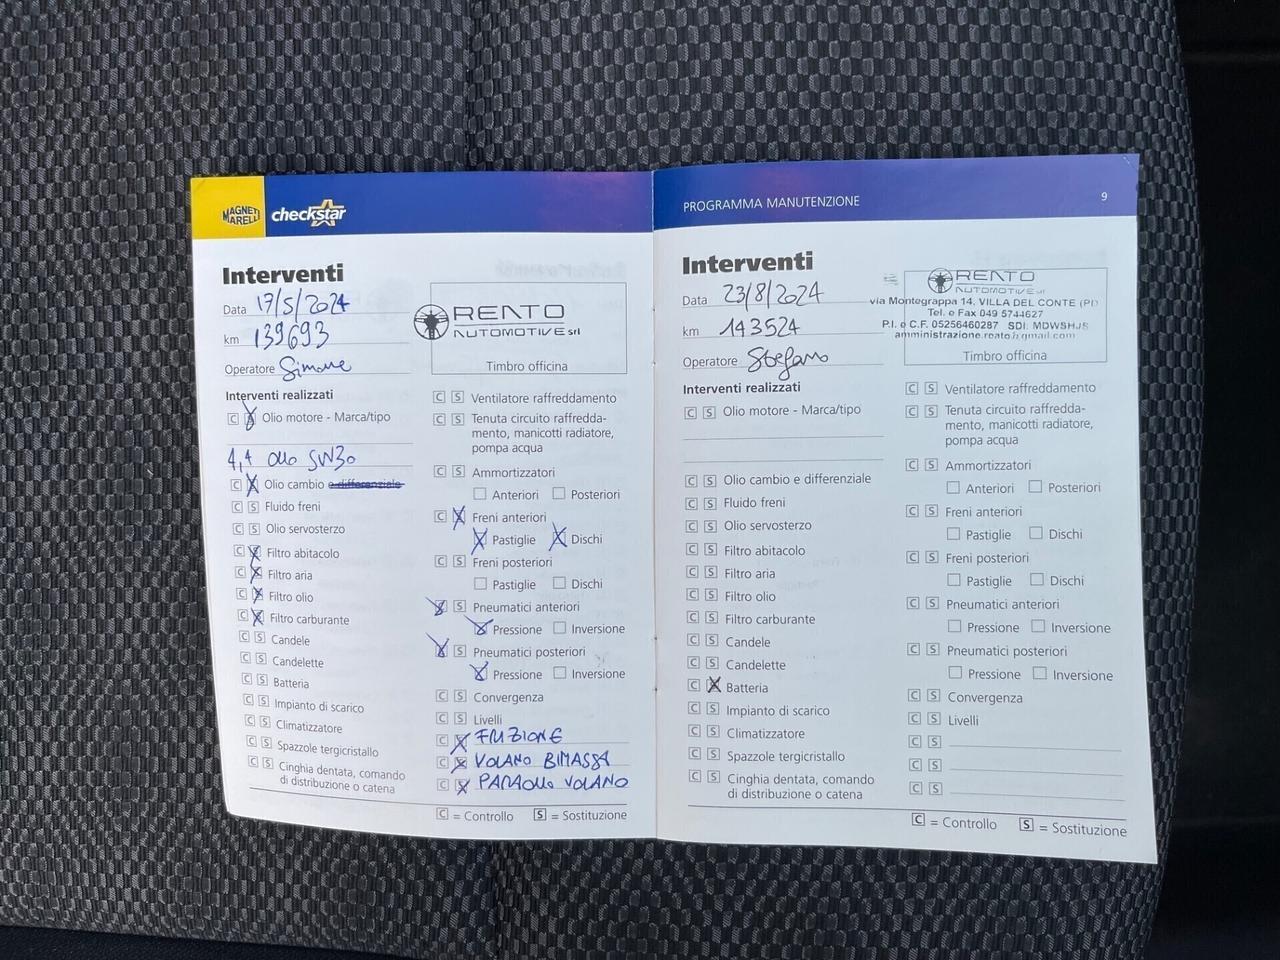 MAGNETI
MARELLI
checkstar
Interventi
Data 17/5/2024
km 139693
Operatore Simone
RENTO
AUTOMOTIVE srl
Timbro officina
Interventi realizzati
C S Olio motore - Marca/tipo
4,4 olio 5W30
C S Olio cambio e differenziale
C S Fluido freni
C S Olio servosterzo
C S Filtro abitacolo
C S Filtro aria
C S Filtro olio
C S Filtro carburante
C S Candele
C S Candelette
C S Batteria
C S Impianto di scarico
C S Climatizzatore
C S Spazzole tergicristallo
C S Cinghia dentata, comando
di distribuzione o catena
C S Ventilatore raffreddamento
C S Tenuta circuito raffredda-
mento, manicotti radiatore,
pompa acqua
C S Ammortizzatori
Anteriori Posteriori
C S Freni anteriori
Pastiglie Dischi
C S Freni posteriori
Pastiglie Dischi
C S Pneumatici anteriori
Pressione Inversione
C S Pneumatici posteriori
Pressione Inversione
C S Convergenza
C S Livelli
C S FRIZIONE
C S VOLANO BIMASSA
C S PARAOLIO VOLANO
C = Controllo S = Sostituzione
PROGRAMMA MANUTENZIONE 9
Interventi
Data 23/8/2024
km 143524
Operatore Stefano
RENTO
AUTOMOTIVE srl
via Montegrappa 14, VILLA DEL CONTE (PD)
Tel. e Fax 049 5744627
P.I. e C.F. 05256460287 SDI: MDWSHJS
Timbro officina
Interventi realizzati
C S Olio motore - Marca/tipo
C S Olio cambio e differenziale
C S Fluido freni
C S Olio servosterzo
C S Filtro abitacolo
C S Filtro aria
C S Filtro olio
C S Filtro carburante
C S Candele
C S Candelette
C S Batteria
C S Impianto di scarico
C S Climatizzatore
C S Spazzole tergicristallo
C S Cinghia dentata, comando
di distribuzione o catena
C S Ventilatore raffreddamento
C S Tenuta circuito raffredda-
mento, manicotti radiatore,
pompa acqua
C S Ammortizzatori
Anteriori Posteriori
C S Freni anteriori
Pastiglie Dischi
C S Freni posteriori
Pastiglie Dischi
C S Pneumatici anteriori
Pressione Inversione
C S Pneumatici posteriori
Pressione Inversione
C S Convergenza
C S Livelli
C S
C S
C S
C = Controllo S = Sostituzione